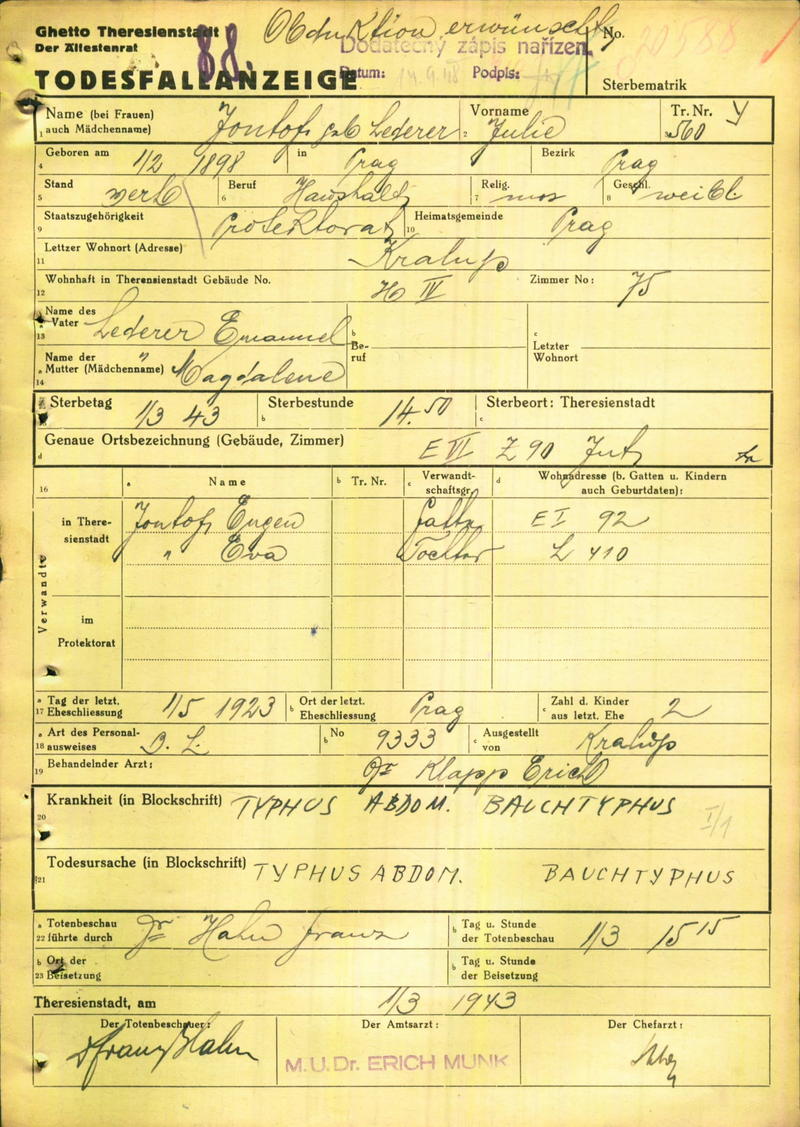 Ghetto Theresienstadt
Der Ältestenrat
88.
Obduktion erwünscht
Dodatečný zápis nařízen.
Datum: Podpis:
No.
TODESFALLANZEIGE
Sterbematrik
Name (bei Frauen) auch Mädchenname) Jontof geb Lederer
Vorname Julie
Tr. Nr. 560 Y
Geboren am 1/2 1898 in Prag Bezirk Prag
Stand verh Beruf Haushalt Relig. mos Geschl. weibl.
Staatszugehörigkeit Protektorat Heimatsgemeinde Prag
Lettzer Wohnort (Adresse) Kralup
Wohnhaft in Theresienstadt Gebäude No. H IV Zimmer No: 75
Name des Vater Lederer Emanuel Beruf Letzter Wohnort
Name der Mutter (Mädchenname) " Magdalene
Sterbetag 1/3 43 Sterbestunde 14.50 Sterbeort: Theresienstadt
Genaue Ortsbezeichnung (Gebäude, Zimmer) E VI Z 90
16 Name Tr. Nr. Verwandtschaftsgr. Wohnadresse (b. Gatten u. Kindern auch Geburtdaten):
Verwandte
in Theresienstadt Jontof Eugen Gatte E I 92
" Eva Tochter L 410
im Protektorat
Tag der letzt. Eheschliessung 1/5 1923 Ort der letzt. Eheschliessung Prag Zahl d. Kinder aus letzt. Ehe 2
Art des Personalausweises No 9333 Ausgestellt von Kralup
Behandelnder Arzt: Dr Klapp Erich
Krankheit (in Blockschrift) TYPHUS ABDOM. BAUCHTYPHUS I/1
Todesursache (in Blockschrift) TYPHUS ABDOM. BAUCHTYPHUS
Totenbeschau führte durch Dr Hahn Franz Tag u. Stunde der Totenbeschau 1/3 15 15
Ort der Beisetzung Tag u. Stunde der Beisetzung
Theresienstadt, am 1/3 1943
Der Totenbeschauer: Der Amtsarzt: Der Chefarzt:
Dr Franz Hahn M.U.Dr. ERICH MUNK